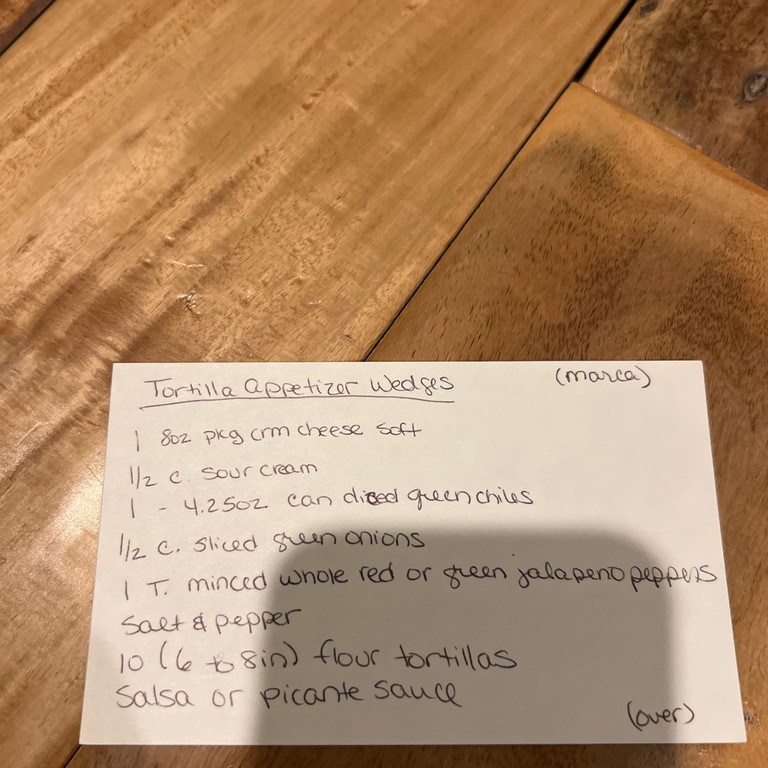 Tortilla Appetizer Wedges (marca)
1 8oz pkg crm cheese soft
1/2 c. sour cream
1 - 4.25oz can diced green chiles
1/2 c. sliced green onions
1 T. minced whole red or green jalapeno peppers
Salt & pepper
10 (6 to 8in) flour tortillas
Salsa or picante sauce
(over)